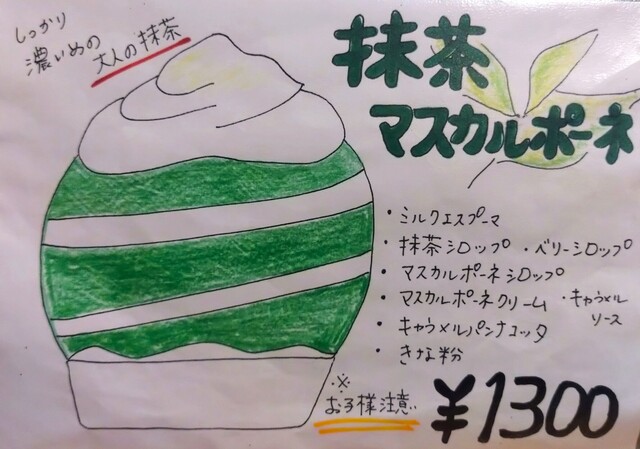 しっかり
濃いめの
大人の抹茶
抹茶
マスカルポーネ
・ミルクエスプーマ
・抹茶シロップ ・ベリーシロップ
・マスカルポーネシロップ
・マスカルポーネクリーム ・キャラメル
ソース
・キャラメルパンナコッタ
・きな粉
※
お子様注意
¥1300